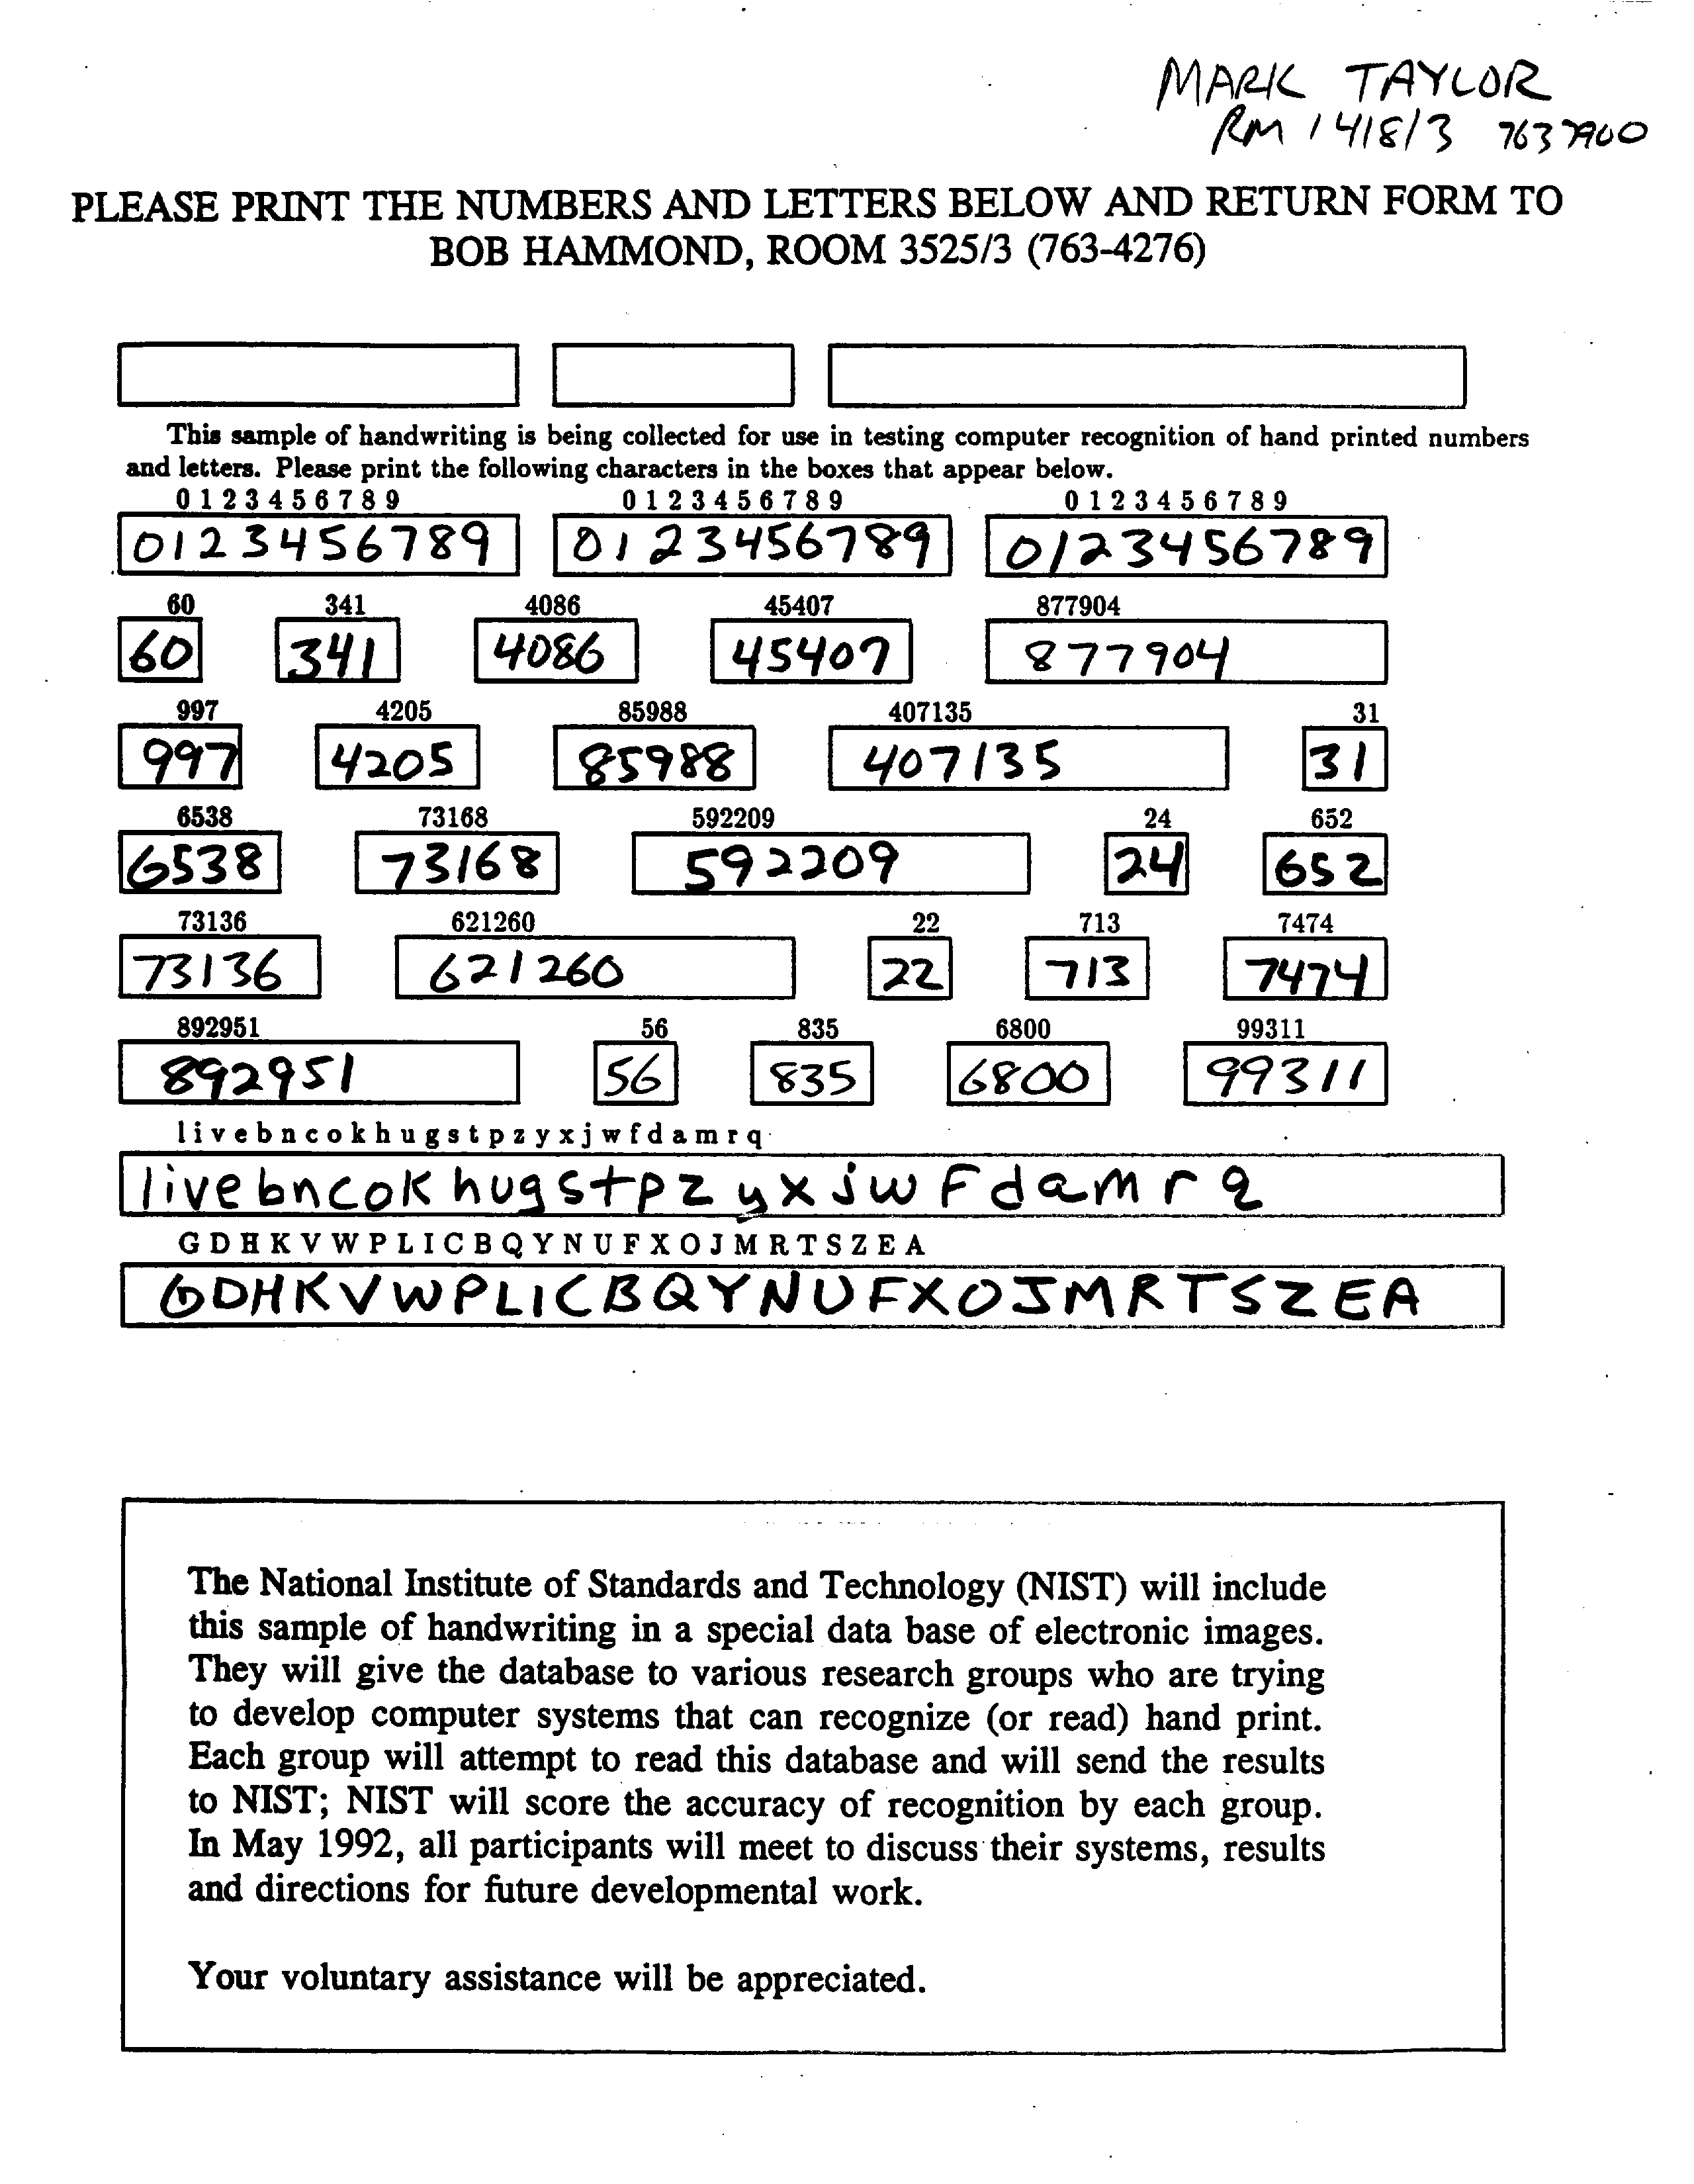 MARK TAYLOR
RM 1418/3 7637900
PLEASE PRINT THE NUMBERS AND LETTERS BELOW AND RETURN FORM TO
BOB HAMMOND, ROOM 3525/3 (763-4276)
This sample of handwriting is being collected for use in testing computer recognition of hand printed numbers
and letters. Please print the following characters in the boxes that appear below.
0 1 2 3 4 5 6 7 8 9 0 1 2 3 4 5 6 7 8 9 0 1 2 3 4 5 6 7 8 9
0123456789 0123456789 0123456789
60 341 4086 45407 877904
60 341 4086 45407 877904
997 4205 85988 407135 31
997 4205 85988 407135 31
6538 73168 592209 24 652
6538 73168 592209 24 652
73136 621260 22 713 7474
73136 621260 22 713 7474
892951 56 835 6800 99311
892951 56 835 6800 99311
l i v e b n c o k h u g s t p z y x j w f d a m r q
livebncokhugstpzyxjwFdamrq
G D H K V W P L I C B Q Y N U F X O J M R T S Z E A
GDHKVWPLICBQYNUFXOJMRTSZEA
The National Institute of Standards and Technology (NIST) will include
this sample of handwriting in a special data base of electronic images.
They will give the database to various research groups who are trying
to develop computer systems that can recognize (or read) hand print.
Each group will attempt to read this database and will send the results
to NIST; NIST will score the accuracy of recognition by each group.
In May 1992, all participants will meet to discuss their systems, results
and directions for future developmental work.
Your voluntary assistance will be appreciated.